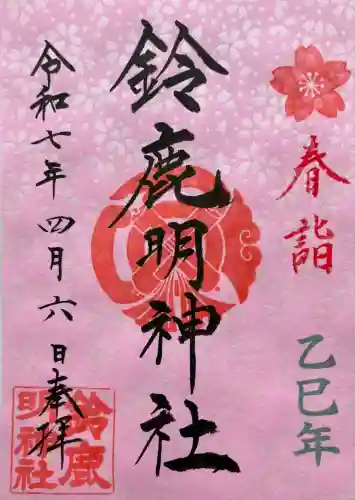 春詣
乙巳年
鈴鹿明神社
令和七年四月六日奉拝
鈴鹿
明神社